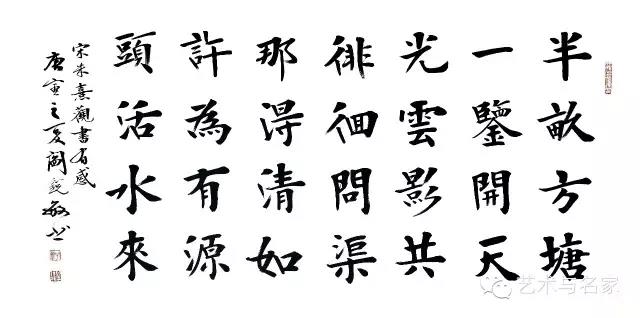 半畝方塘
一鑒開天
光雲影共
徘徊問渠
那得清如
許為有源
頭活水來
宋朱熹觀書有感
庚寅之夏
艺术与名家